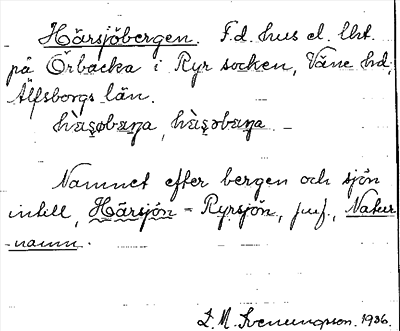 Härsjöbergen. F.d. hus el. lht.
på Örbacka i Ryr socken, Väne hd,
Älfsborgs län.
hὰʂøbæʀa, hὰʂobæʀa –
Namnet efter bergen och sjön
intill, Härsjön = Ryrsjön, jmf. Natur
-namn.
L. M. Svenungsson. 1936.